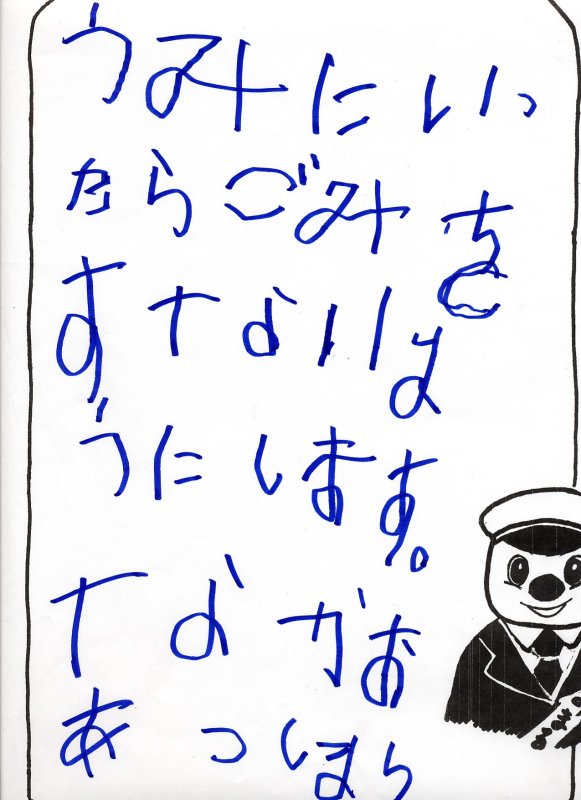 うみにいっ
たらごみを
すないよ
うにします。
なかお
あつ